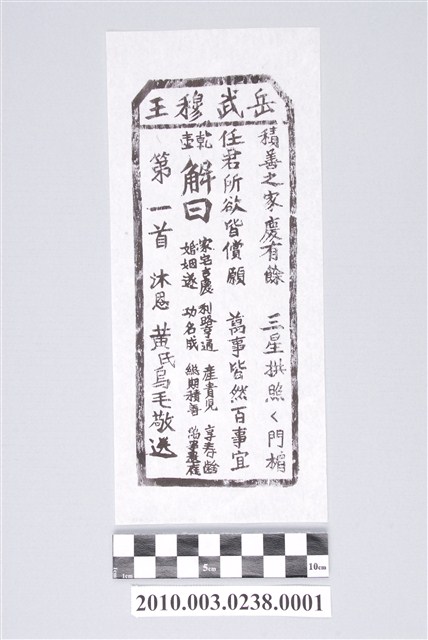 岳武穆王
積善之家慶有餘 三星拱照く門楣
任君所欲皆償願 萬事皆然百事宜
乾壺
解曰
家宅吉慶 利路亨通 產貴兒 享寿齡
婚姻遂 功名成
第一首 沐恩 黃氏烏毛敬送
1cm 5cm 10cm
2010.003.0238.0001